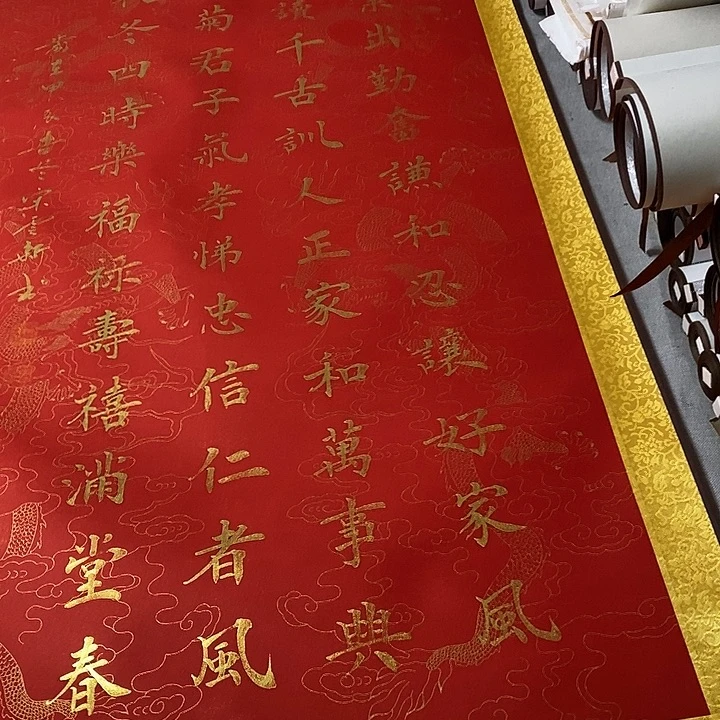 出勤奮謙和忍讓好家風
讀千古訓人正家和萬事興
菊君子氣孝悌忠信仁者風
秋冬四時樂福祿壽禧滿堂春